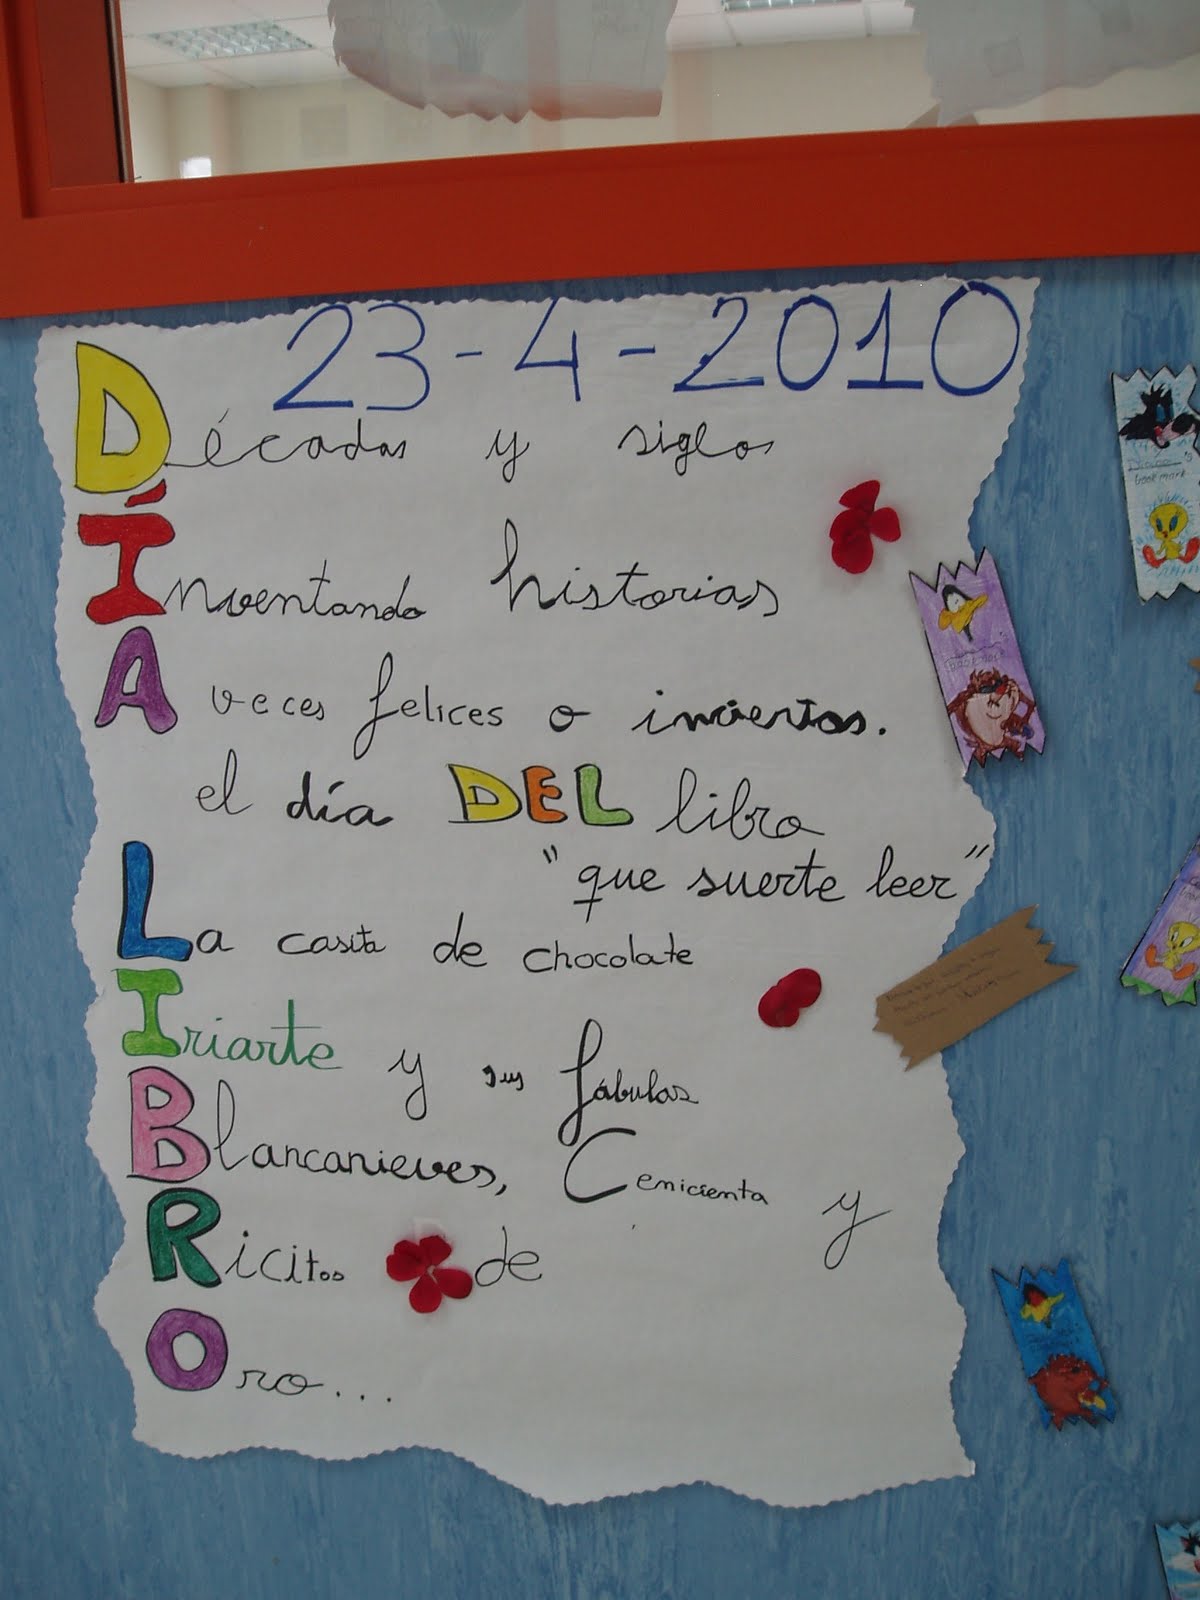 23-4-2010
Décadas y siglos
Inventando historias
A veces felices o inciertas.
el día DEL libro
"que suerte leer"
La casita de chocolate
Iriarte y sus fábulas
Blancanieves, Cenicienta y
Ricitos de
Oro...
bookmark